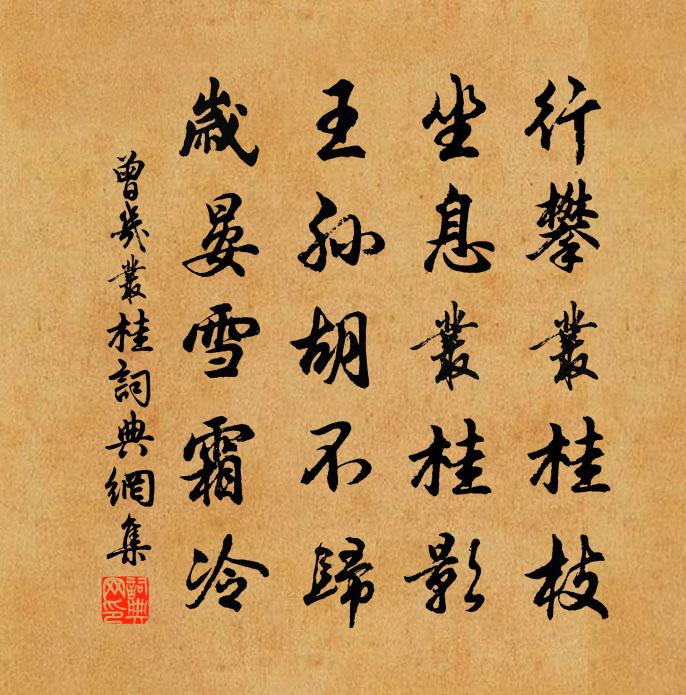 行攀叢桂枝
坐息叢桂影
王孙胡不歸
歲晏雪霜冷
曾幾叢桂詞典網集
詞典网印